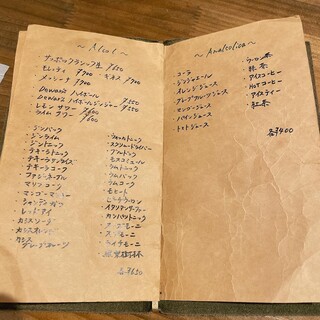 〜 Alcol 〜
・サッポロクラシック生 ¥650
・モレッティ ¥700 ・ギネス ¥700
・メッシーナ ¥700
・Dewar's ハイボール
・Dewar's ハイボールジンジャー
・レモンサワー ¥600
・ライムサワー
・ジンバック
・ジンライム
・ジントニック
・ラムトニック
・テキーラトニック
・テキーラサンライズ
・ファジーネーブル
・マリブコーク
・レッドアイ
・カシスソーダ
・カシスオレンジ
・カシスグレープフルーツ
・ウォッカトニック
・スクリュードライバー
・ブルドック
・モスコミュール
・ラムトニック
・ラムバック
・ラムコーク
・モヒート
・カンパリトニック
・スプモーニ
・ライチモーニ
各¥650
〜 Analcolica 〜
・コーラ
・ジンジャエール
・オレンジジュース
・グレープフルーツジュース
・マンゴージュース
・パインジュース
・トマトジュース
・ウーロン茶
・緑茶
・アイスコーヒー
・HOTコーヒー
・アイスティー
・紅茶
各¥400